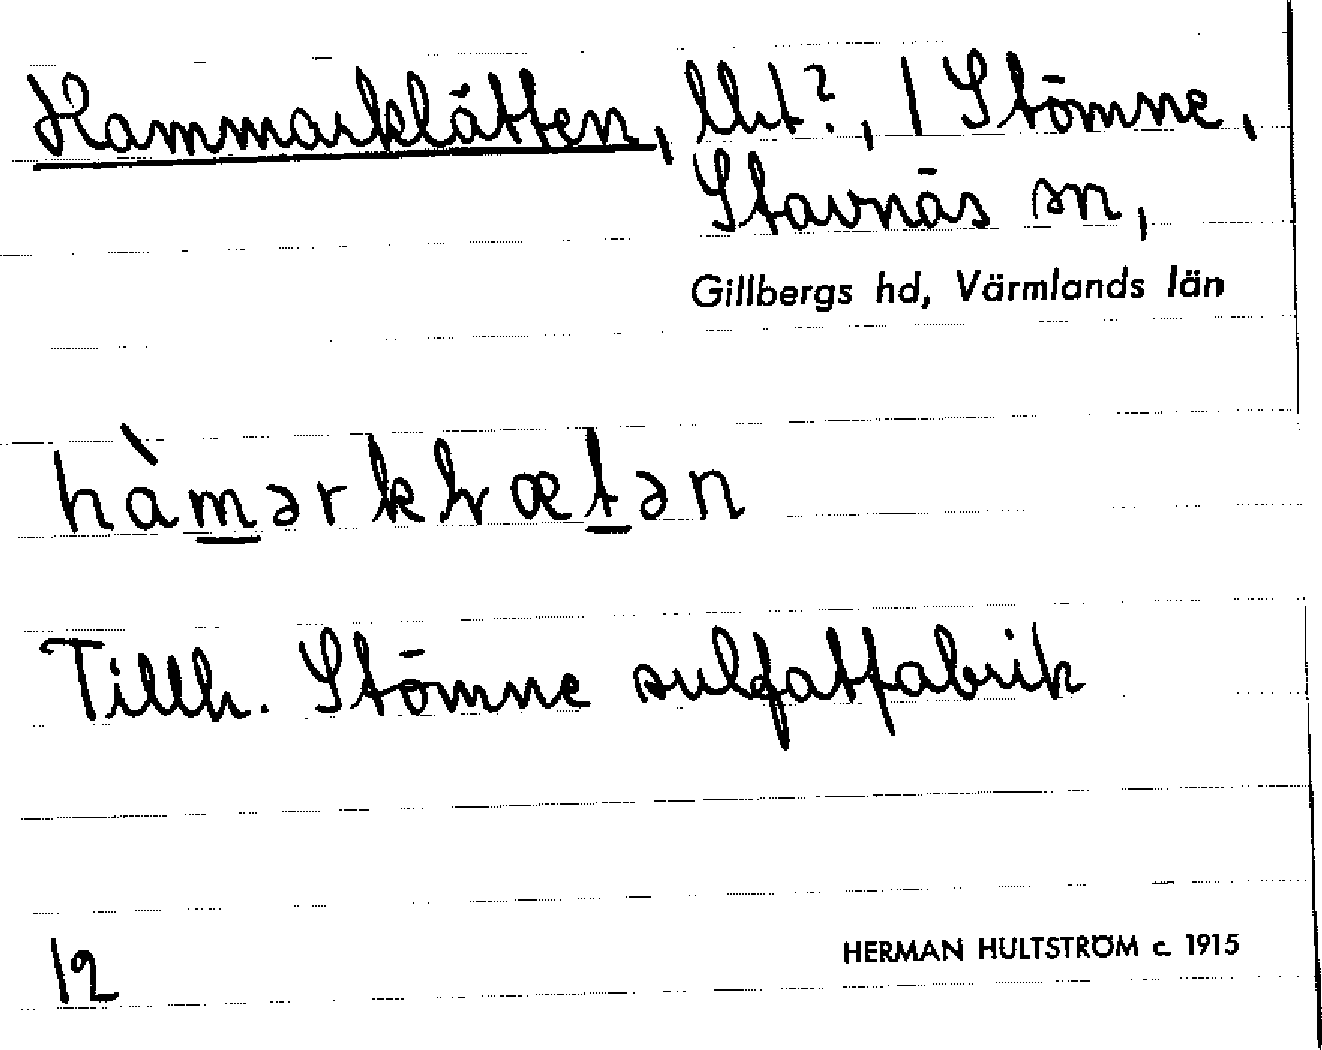 Hammarklätten, lht?, 1 Stömne,
Stavnäs sn,
Gillbergs hd, Värmlands län
hàmərkɽætən
Tillh. Stömne sulfatfabrik
12
HERMAN HULTSTRÖM c. 1915